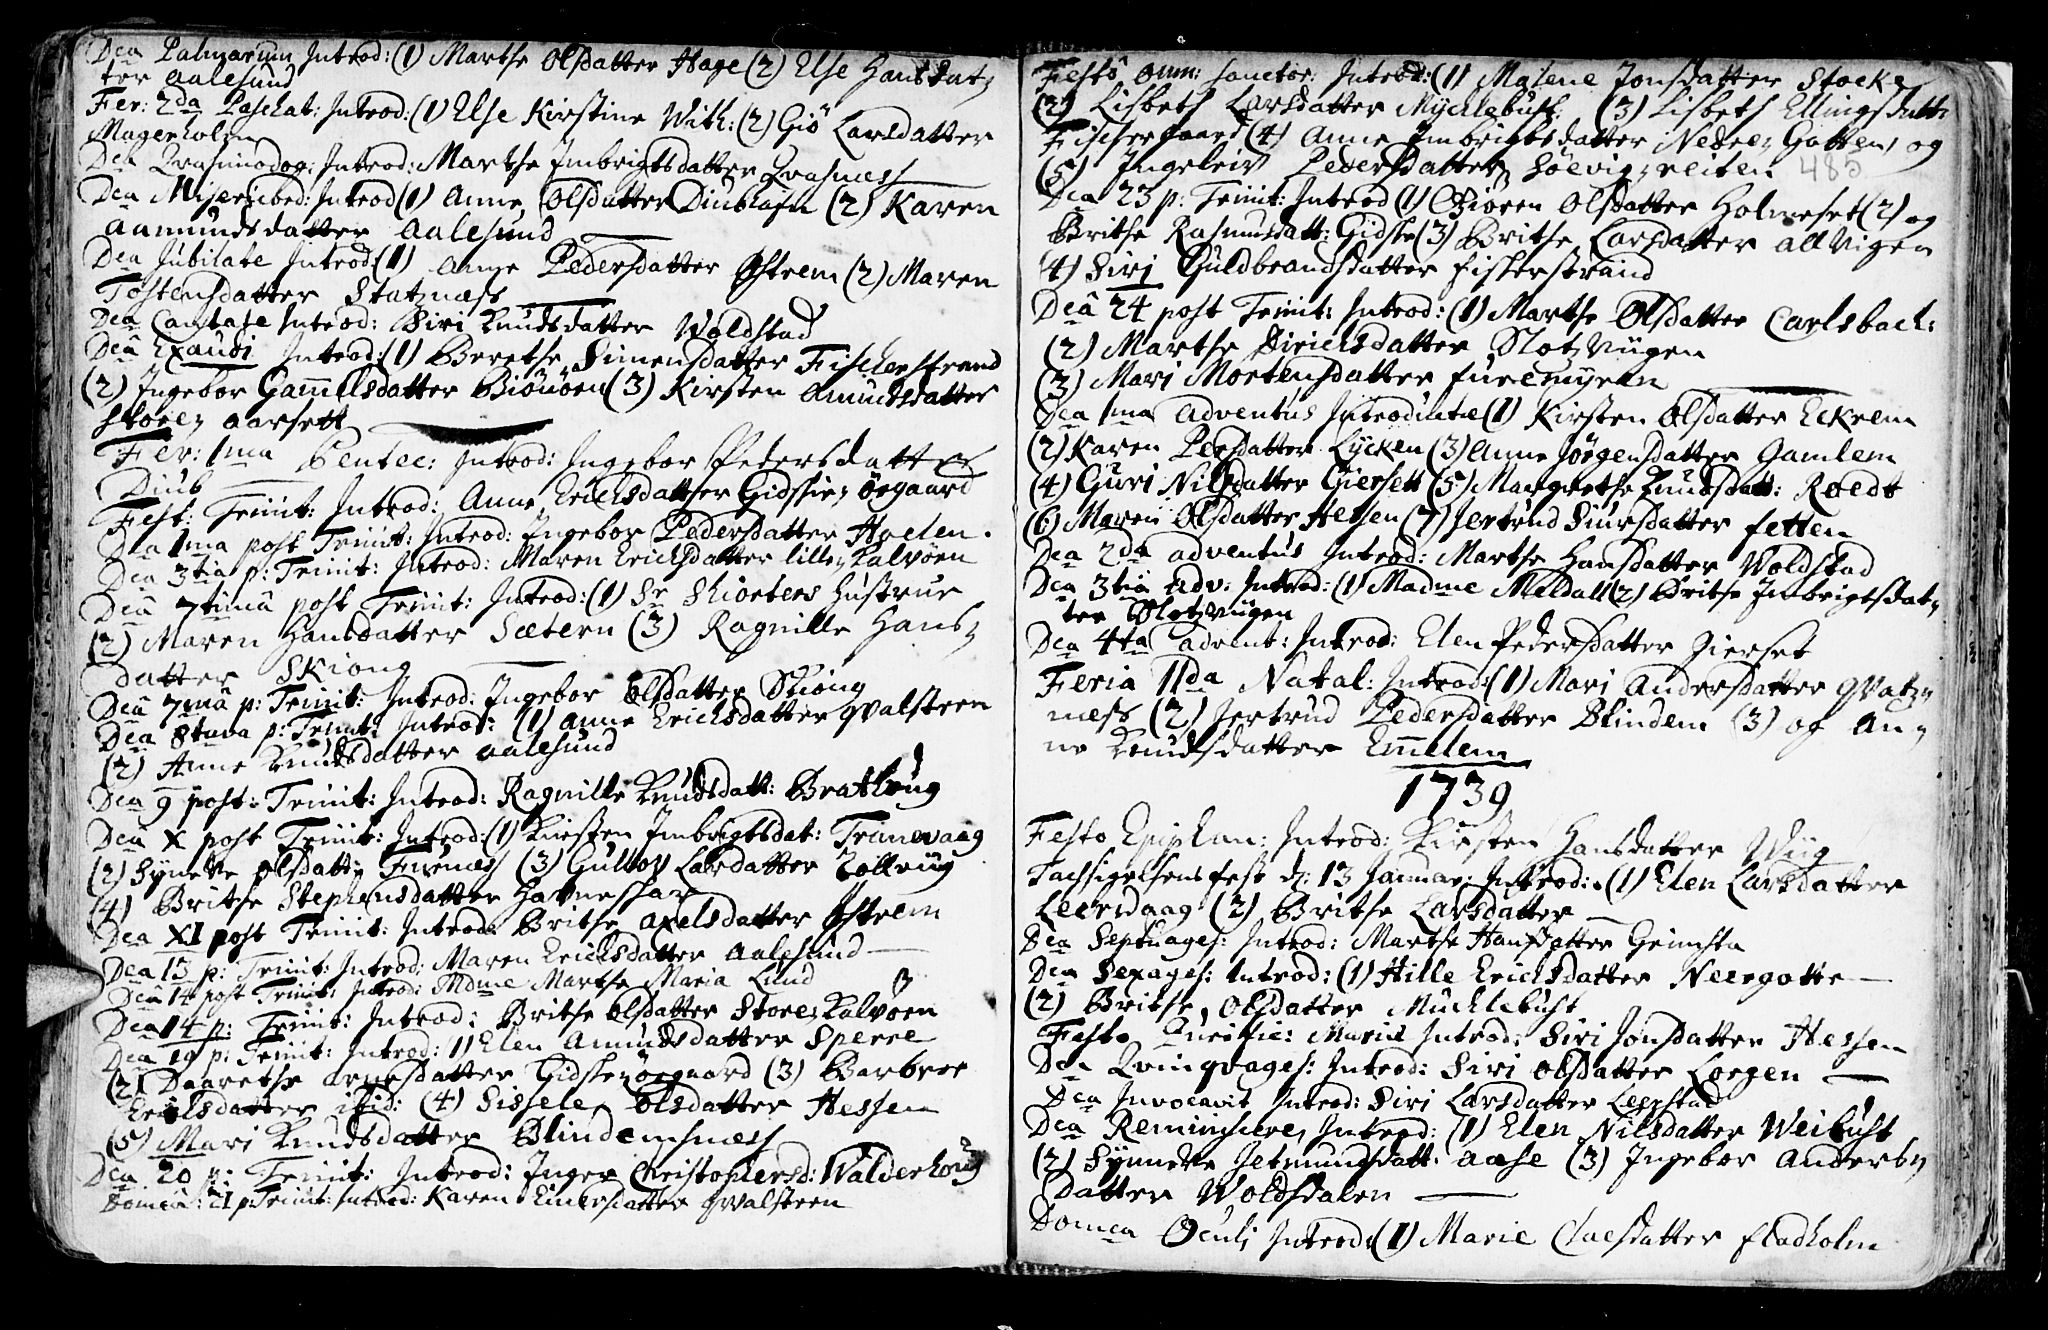 Dca Palmarum Introd: (1) Marthe Olsdatter Hage (2) Else Hansdat,
ter Aalesund
Fer: 2da Paschat: Introd: (1) Else Kirstine With: (2) Giö Larsdatter
Magerholm
Dca Qvasimodog: Introd: Marthe Imbrigtsdatter Qvasness
Dca Misericord: Introd (1) Anne Olsdatter (2) Karen
Aamundsdatter Aalesund
Dca Jubilate Introd: (1) Anne Pedersdatter Østrem (2) Maren
Tostensdatter Statzness
Dca Cantate Introd: Siri Knudsdatter Woldstad
Dca Exaudi Introd: (1) Berethe Simensdatter Fischerstrand
(2) Ingebor Gamelsdatter Biönöen (3) Kirsten Amundsdatter
Store, Aarsett
Fer: 1ma Pentec: Introd: Ingebor Pedersdatter
Diub
Fest: Trinit: Introd: Anne Erichsdatter Gidske, öegaard
Dca 1ma post Trinit: Introd: Ingebor Pedersdatter Hoelen.
Dca 3tia p: Trinit: Introd: Maren Erichsdatter lille, Kalvöen
Dca 7tima post Trinit: Introd: (1) Sr Skiorters Hustrue
(2) Maren Hansdatter Sætern (3) Ragnille Hans,
datter Skiong
Dca 7ma p: Trinit: Introd: Ingebor Olsdatter Skiong
Dca 8tava p: Trinit: Introd: (1) Anne Erichsdatter Qvalsteen
(2) Anne Knudsdatter Aalesund
Dca 9 post: Trinit: Introd: Ragnille Knudsdatt: Bratthoug
Dca X post Trinit: Introd: (1) Kirsten Imbrigtsdat: Tranevaag
(2) Synneve Olsdatt, Furnæss (3) Larsdatter
(4) Brithe Stephensdatter Havneschar
Dca XI post Trinit: Introd: Brithe Axelsdatter Østrem
Dca 13 p: Trinit: Introd: Maren Erichsdatter Aalesund
Dca 14 post Trinit: Introd: Mdme Marthe Maria Lund
Dca 14 p: Trinit: Introd: Brithe Olsdatter Store, Kalvöen
Dca 19 p: Trinit: Introd: 1) Elen Amundsdatter Sperre
(2) Daarethe Arnesdatter Gidske, öegaard (3) Barbroe
Erichsdatter ibid: (4) Sissele Olsdatter Hessen
(5) Mari Knudsdatter Blindemsness
Dca 20 p: Trinit: Introd: Inger Christophersd: Walderhoug
Domca: 21 p Trinit: Introd: Karen Einersdatter Qvalsteen
Festo Omn: Sanctor: Introd: (1) Malene Jonsdatter Stocke
(2) Lisbeth Larsdatter Mycklebust: (3) Lisbeth Ellingsdatt:
Fischergaard (4) Anne Imbrigtsdatter Nedre, Gotten, og
(5) Ingeleiv Pedersdatter, Soevig, reiten 485
Dca 23 p: Trinit: Introd (1) Giören Olsdatter Holmeset (2) og
Brithe Rasmusdatt: Gidske (3) Brithe Larsdatter Alvigen
(4) Siri Guldbrandsdatter Fiskerstrand
Dca 24 post Trinit: Introd: (1) Marthe Olsdatter Carlsbach:
(2) Marthe Dirichsdatter Slot, Viigen
(3) Mari Mortensdatter Furemyren
Dca 1ma Adventus Introductæ (1) Kirsten Olsdatter Eckrem
(2) Karen Persdatter Lycken (3) Anne Jörgensdatter Gamlem
(4) Guri Nilsdatter Giersett (5) Margrethe Knudsdatt: Roedt
(6) Maren Olsdatter Hessen (7) Jertrud Siursdatter Fetten
Dca 2da Adventus Introd: Marthe Hansdatter Woldstad
Dca 3tia Adv: Introd: (1) Madme Meldall (2) Brithe Imbrigtsdat,
ter Slot, Viigen
Dca 4ta Advent: Introd: Elen Pedersdatter Gierset
Feria 11da Natal: Introd: (1) Mari Andersdatter Qvatz,
ness (2) Jertrud Pedersdatter Blindem (3) og An,
ne Knudsdatter Emelem
1739
Festo Epiphan: Introd: Kirsten Hansdatter Wiig
Tachsigelsens fest d: 13 Januar: Introd: (1) Elen Larsdatter
Leervaag (2) Brithe Larsdatter
Dca Septuages: Introd: Marthe Hansdatter Grimsta
Dca Sexages: Introd: (1) Hille Erichsdatter Neergotte
(2) Brithe Olsdatter Mucklebust
Festo Purific: Mariæ Introd: Siri Jonsdatter Hessen
Dca Qvinqvages: Introd: Siri Olsdatter Lorgen
Dca Invocavit Introd: Siri Larsdatter Leerstad
Dca Reminisere, Introd: (1) Elen Nilsdatter Weibust
(2) Synneve Jetmundsdatt: Aase (3) Ingebor Anders,
datter Woldsdalen
Domca Oculi Introd: (1) Marie Claesdatter Fladholm